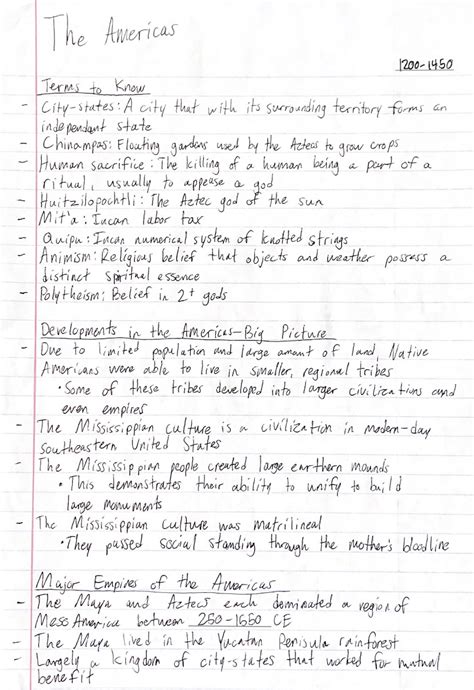 The Americas
1200-1450
Terms to Know
- City-states: A city that with its surrounding territory forms an
independant state
- Chinampas: Floating gardens used by the Aztecs to grow crops
- Human sacrifice: The killing of a human being a part of a
ritual, usually to appease a god
- Huitzilopochtli: The Aztec god of the sun
- Mit'a: Incan labor tax
- Quipu: Incan numerical system of knotted strings
- Animism: Religious belief that objects and weather possess a
distinct spiritual essence
- Polytheism: Belief in 2+ gods
Developments in the Americas-Big Picture
- Due to limited population and large amount of land, Native
Americans were able to live in smaller, regional tribes
• Some of these tribes developed into larger civilizations and
even empires
- The Mississippian culture is a civilization in modern-day
southeastern United States
- The Mississippian people created large earthern mounds
• This demonstrates their ability to unify to build
large monuments
- The Mississippian Culture was matrilineal
• They passed social standing through the mother's bloodline
Major Empires of the Americas
- The Maya and Aztecs each dominated a region of
MesoAmerica between 250-1550 CE
- The Maya lived in the Yucatan Penisula rainforest
- Largely a kingdom of city-states that worked for mutual
benefit